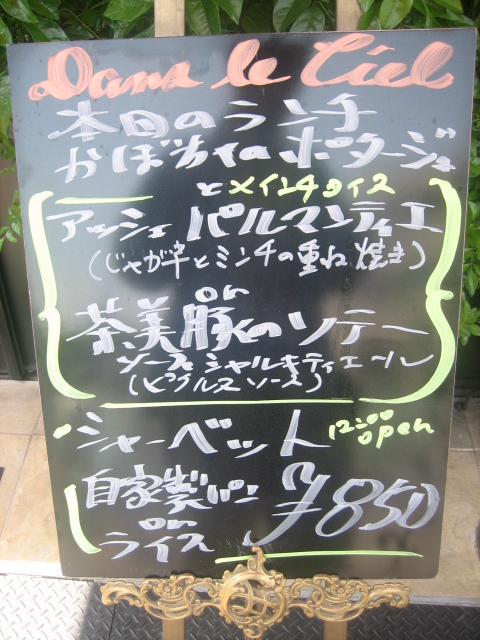 Dans le Ciel
本日のランチ
かぼちゃのポタージュ
とメインチョイス
アッシェ パルマンティエ
(じゃが芋とミンチの重ね焼き)
or
茶美豚のソテー
ソースシャルキティエール
(ピクルスソース)
シャーベット
12:00 open
自家製パン
or
ライス
¥850